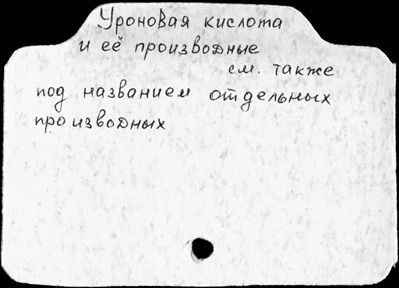 Уроновая кислота
и её производные
см. также
под названием отдельных
производных